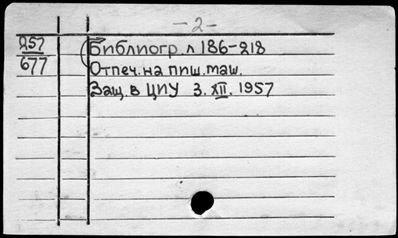 - 2 -
257
677
Библиогр. л 186-218
Отпеч. на пиш. маш.
Защ. в ЦИУ 3. XII. 1957